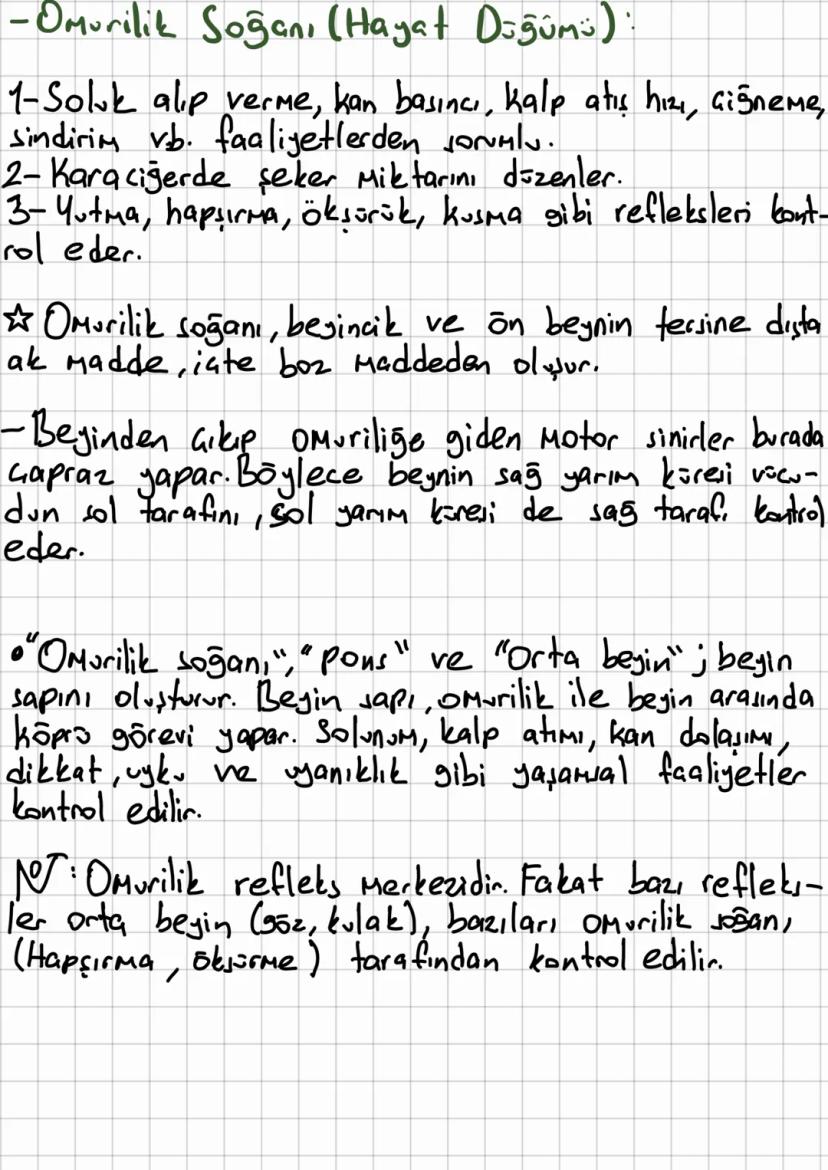 - Omurilik Soğanı (Hayat Düğümü):
1- Soluk alıp verme, kan basıncı, kalp atış hızı, çiğneme,
sindirim vb. faaliyetlerden sorumlu.
2- Karaciğerde şeker miktarını düzenler.
3- Yutma, hapşırma, öksürük, kusma gibi refleksleri kont-
rol eder.
☆ Omurilik soğanı, beyincik ve ön beynin tersine dışta
ak madde, içte boz maddeden oluşur.
- Beyinden çıkıp omuriliğe giden motor sinirler burada
çapraz yapar. Böylece beynin sağ yarım küresi vücu-
dun sol tarafını, sol yarım küresi de sağ tarafı kontrol
eder.
• "Omurilik soğanı", "pons" ve "Orta beyin"; beyin
sapını oluşturur. Beyin sapı, omurilik ile beyin arasında
köprü görevi yapar. Solunum, kalp atımı, kan dolaşımı,
dikkat, uyku ve uyanıklık gibi yaşamsal faaliyetler
kontrol edilir.
NOT: Omurilik refleks merkezidir. Fakat bazı refleks-
ler orta beyin (göz, kulak), bazıları omurilik soğanı
(Hapşırma, öksürme) tarafından kontrol edilir.